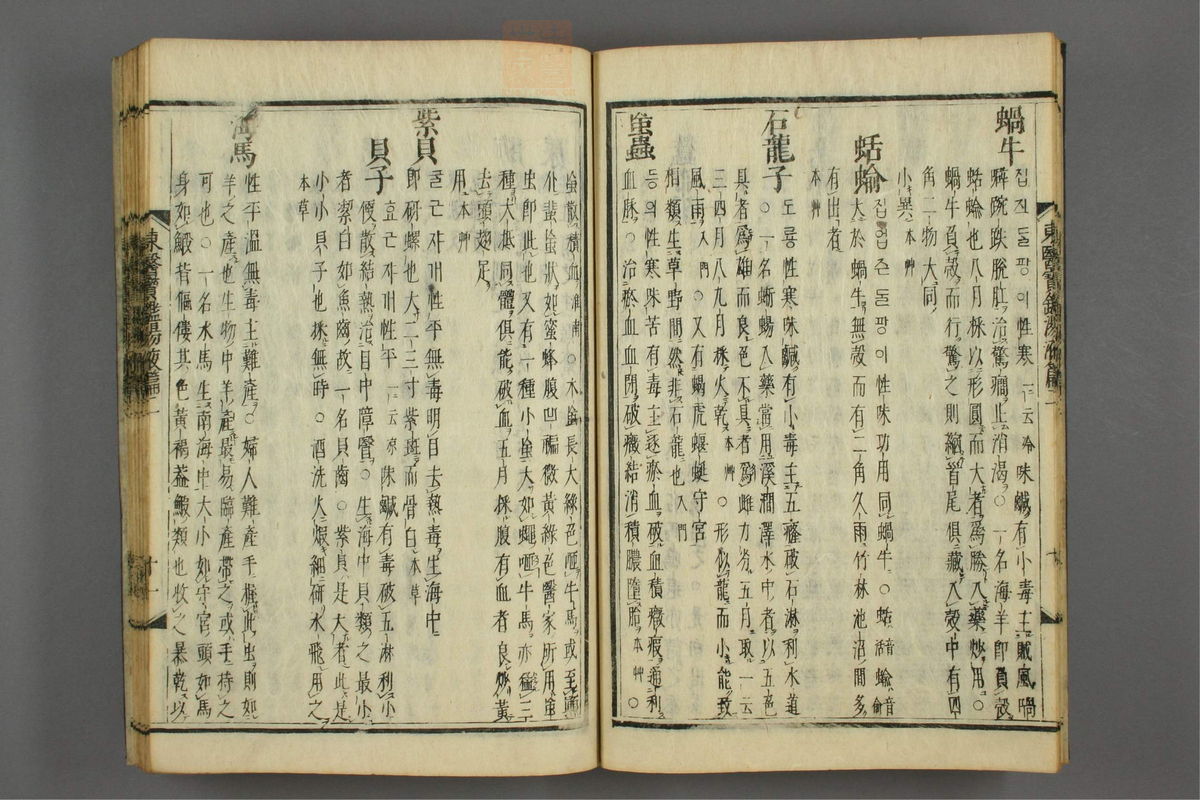 蝸牛
집진둘팡이性寒一云冷味鹹有小毒主賊風喎
僻踠跌脫肛治驚癎止消渴○一名海羊卽負殼
蛞蝓也八月採以形圓而大者爲勝入藥炒用○
蝸牛負殼而行驚之則縮首尾俱藏入殼中有四
角二物大同
小異本艸
蛞蝓
집업슨둘팡이性味功用同蝸牛○蛞音蝓音
大於蝸牛無殼而有二角久雨竹林池沼間多
有出者
本艸
石龍子
도룡性寒味鹹有小毒主五癃破石淋利水道
○一名蜥蜴入藥當用溪澗澤水中者以五色
具者爲雄而良色不具者爲雌力劣五月取一云
三四月八九月採火乾本艸○形似龍而小能致
風雨入門○又有蝎虎蝘蜓守宮
相類生草野間然非石龍也入門
蝱蟲
등의性寒味苦有毒主逐瘀血破血積癥瘕通利
血脉○治瘀血血閉破癥結消積膿墮胎本艸○
蝱散積血○木蝱長大綠色咂牛馬或至
蜚蝱狀如蜜蜂腹凹褊微黃綠色醫家所用蝱
虫卽此也又有一種小蝱大如蠅咂牛馬亦猛三
種大抵同體俱能破血五月採腹有血者良炒黃
去頭翅足
用本艸
紫貝
굴근쟈개性平無毒明目去熱毒生海中
卽砑螺也大二三寸紫斑而骨白本草
貝子
효근쟈개性平一云凉味鹹有毒破五淋利小
便散結熱治目中障瞖○生海中貝類之最小
者潔白如魚齒故一名貝齒○紫貝是大者此是
小小貝子也採無時○酒洗火煆細硏水飛用之
本草
海馬
性平溫無毒主難産○婦人難産手握此虫則如
羊之産也生物中羊産最易臨産帶之或手持之
可也○一名水馬生南海中大小如守宮頭如馬
身如鰕背傴僂其色黃褐蓋鰕類也收之暴乾以
東醫寶鑑湯液篇一
十
東醫寶鑑湯液篇一